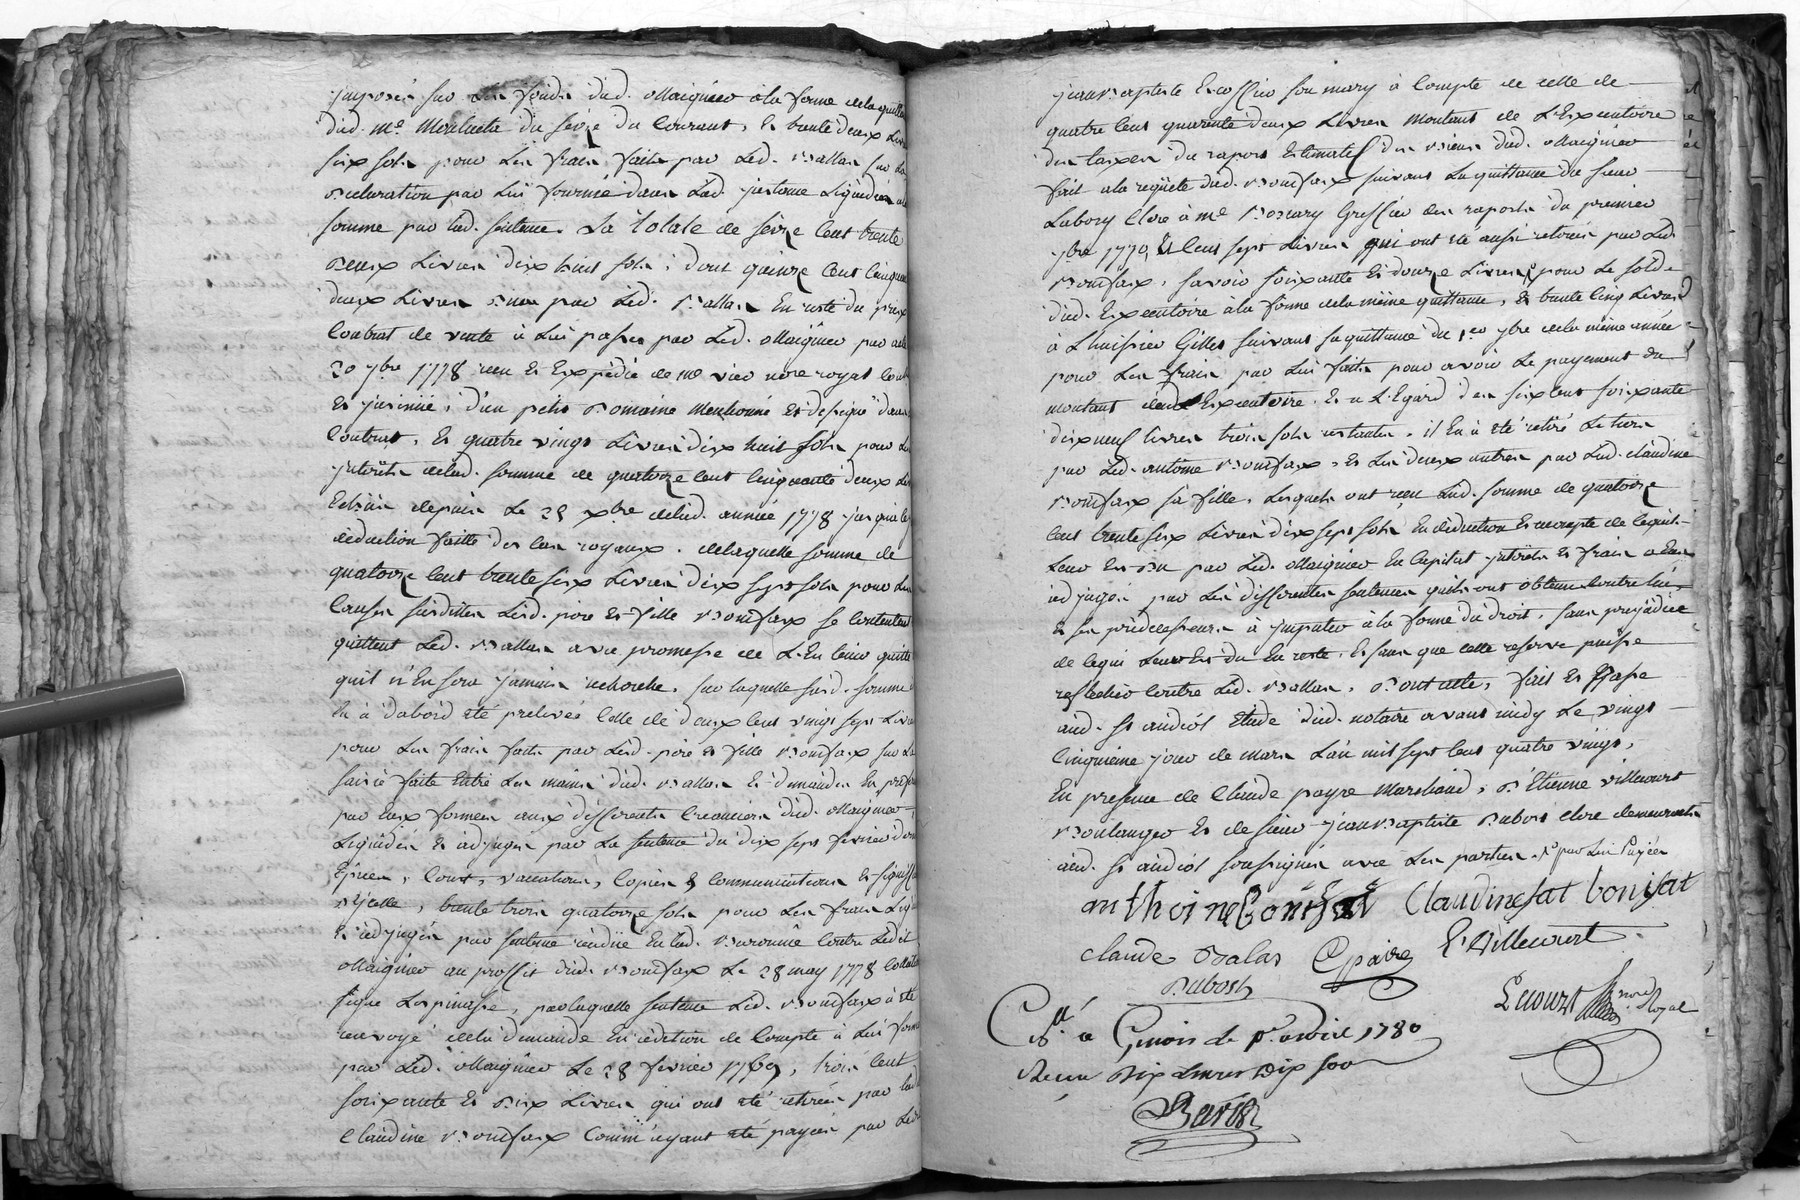 imposés sur les fonds dud. Maigniew a la forme de la quittance
dud. Me. du seize du courant, et trente deux Livres
six sols pour les frais faits par Led. Ballas sur La
declaration par Lui fournie dans Lad. instance Liquidés a lad.
somme par lad. sentence. La totale de seize Cent trente
Deux Livres dix huit sols ; dont quinze Cent Cinquante
deux Livres Dues par Led. Ballas En reste du prix
Contrat de vente à Lui passé par Led. Maigniew par acte
20 ybre 1778 reçu et Expédié de me vier nore royal
et insinué, d'un petit Domaine Mentionné et designé dans
Contrat, et quatre vingt Livres dix huit sols pour Les
interêts delad. somme de quatorze Cent Cinquante deux Livres
Echüs depuis Le 25 xbre delad. année 1778 jusqua
déduction faitte des royaux. de laquelle somme de
quatorze Cent trente six Livres dix sept sols pour Les
Causes susdittes Lesd. pere et fille Bonifaix se Contentent
quittent Led. Ballas avec promesse de L'En tenir quitte
quil n'En sera jamais recherché. sur laquelle susd. somme
En à d'abord été prelevée Celle de deux Cent vingt sept Livres
pour Les frais faits par Lesd. pere et fille Bonifaix sur La
saisie faite Entre Les mains dud. Ballas et demandes En
par Eux formées aux differents Creanciers dud. Maigniew,
Liquidés et adjugés par La sentence du dix sept fevrier
Epices, Cout, vaccations, Copies et Communications et
D'icelle, trente trois quatorze sols pour Les frais
et adjugés par sentence rendüe En lad. Baronnie Contre Ledit
Maigniew au proffit dud. Bonifaix Le 28 may 1778
signé Lespinasse, par laquelle sentence Led. Bonifaix à été
renvoyé dela demande En reddition de Compte à Lui formée
par Led. Maigniew Le 28 fevrier 1769, trois Cent
soixante et Dix Livres qui ont été retirées par lad.
Claudine Bonifaix Comm'ayant été payées par Led.
jean Baptiste son mary à Compte de Celle de
quatre Cent quarente deux Livres Montant de L'Executoire
des taxes du raport Estimatif des biens dud. Maigniew
fait ala requête dud. Bonifaix suivant La quittance du sieur
Labory Clerc à me. Bossary Greffier des raports du premier
ybre 1779 et Cent sept Livres qui ont été aussi retirées par Led.
Bonifaix, savoir soixante et douze Livres pour Le solde
dud. Executoire àla forme dela même quittance, et trente Cinq Livres
à L'huissier Gilles suivant sa quittance du 1er ybre dela même année
pour Les frais par Lui faits pour avoir Le payement du
montant dud. Executoire. Et a L'Egard des six Cent soixante
dix neuf livres trois sols restantes, il En à été retiré Le tiers
par Led. antoine Bonifaix, et Les deux autres par Lad. claudine
Bonifaix sa fille. Lesquels ont reçu Lad. somme de quatorze
Cent trente six Livres dix sept sols En déduction Et acompte de Cequi
Leur Est Du par Led. Maigniew En Capital interêts et frais a Eux
adjugés par Les differentes sentences quils ont obtenu Contre Lui
et ses prédecesseurs à imputer àla forme du droit, sans prejudice
de Cequi Leur Est du En reste. Et sans que Cette reserve puisse
reflechir Contre Led. Ballas, Dont acte, fait et Passé
aud. st andéol Etude dud. notaire avant midy Le vingt
Cinquieme jour de Mars L'an mil sept Cent quatre vingt,
En presence de Claude payre Marchand, D'Etienne Villecourt
Boulanger et de sieur jean Baptiste Dubois Clerc demeurants
aud. st andéol soussignés avec Les parties.
anthoine Bonifat Claudine fat bonifat
claude Balas Cpaire E Villecourt
Dubost
Lecourt nore Royal
Clle. a le pr. avril 1780
Recu Dix Livres Dix sous